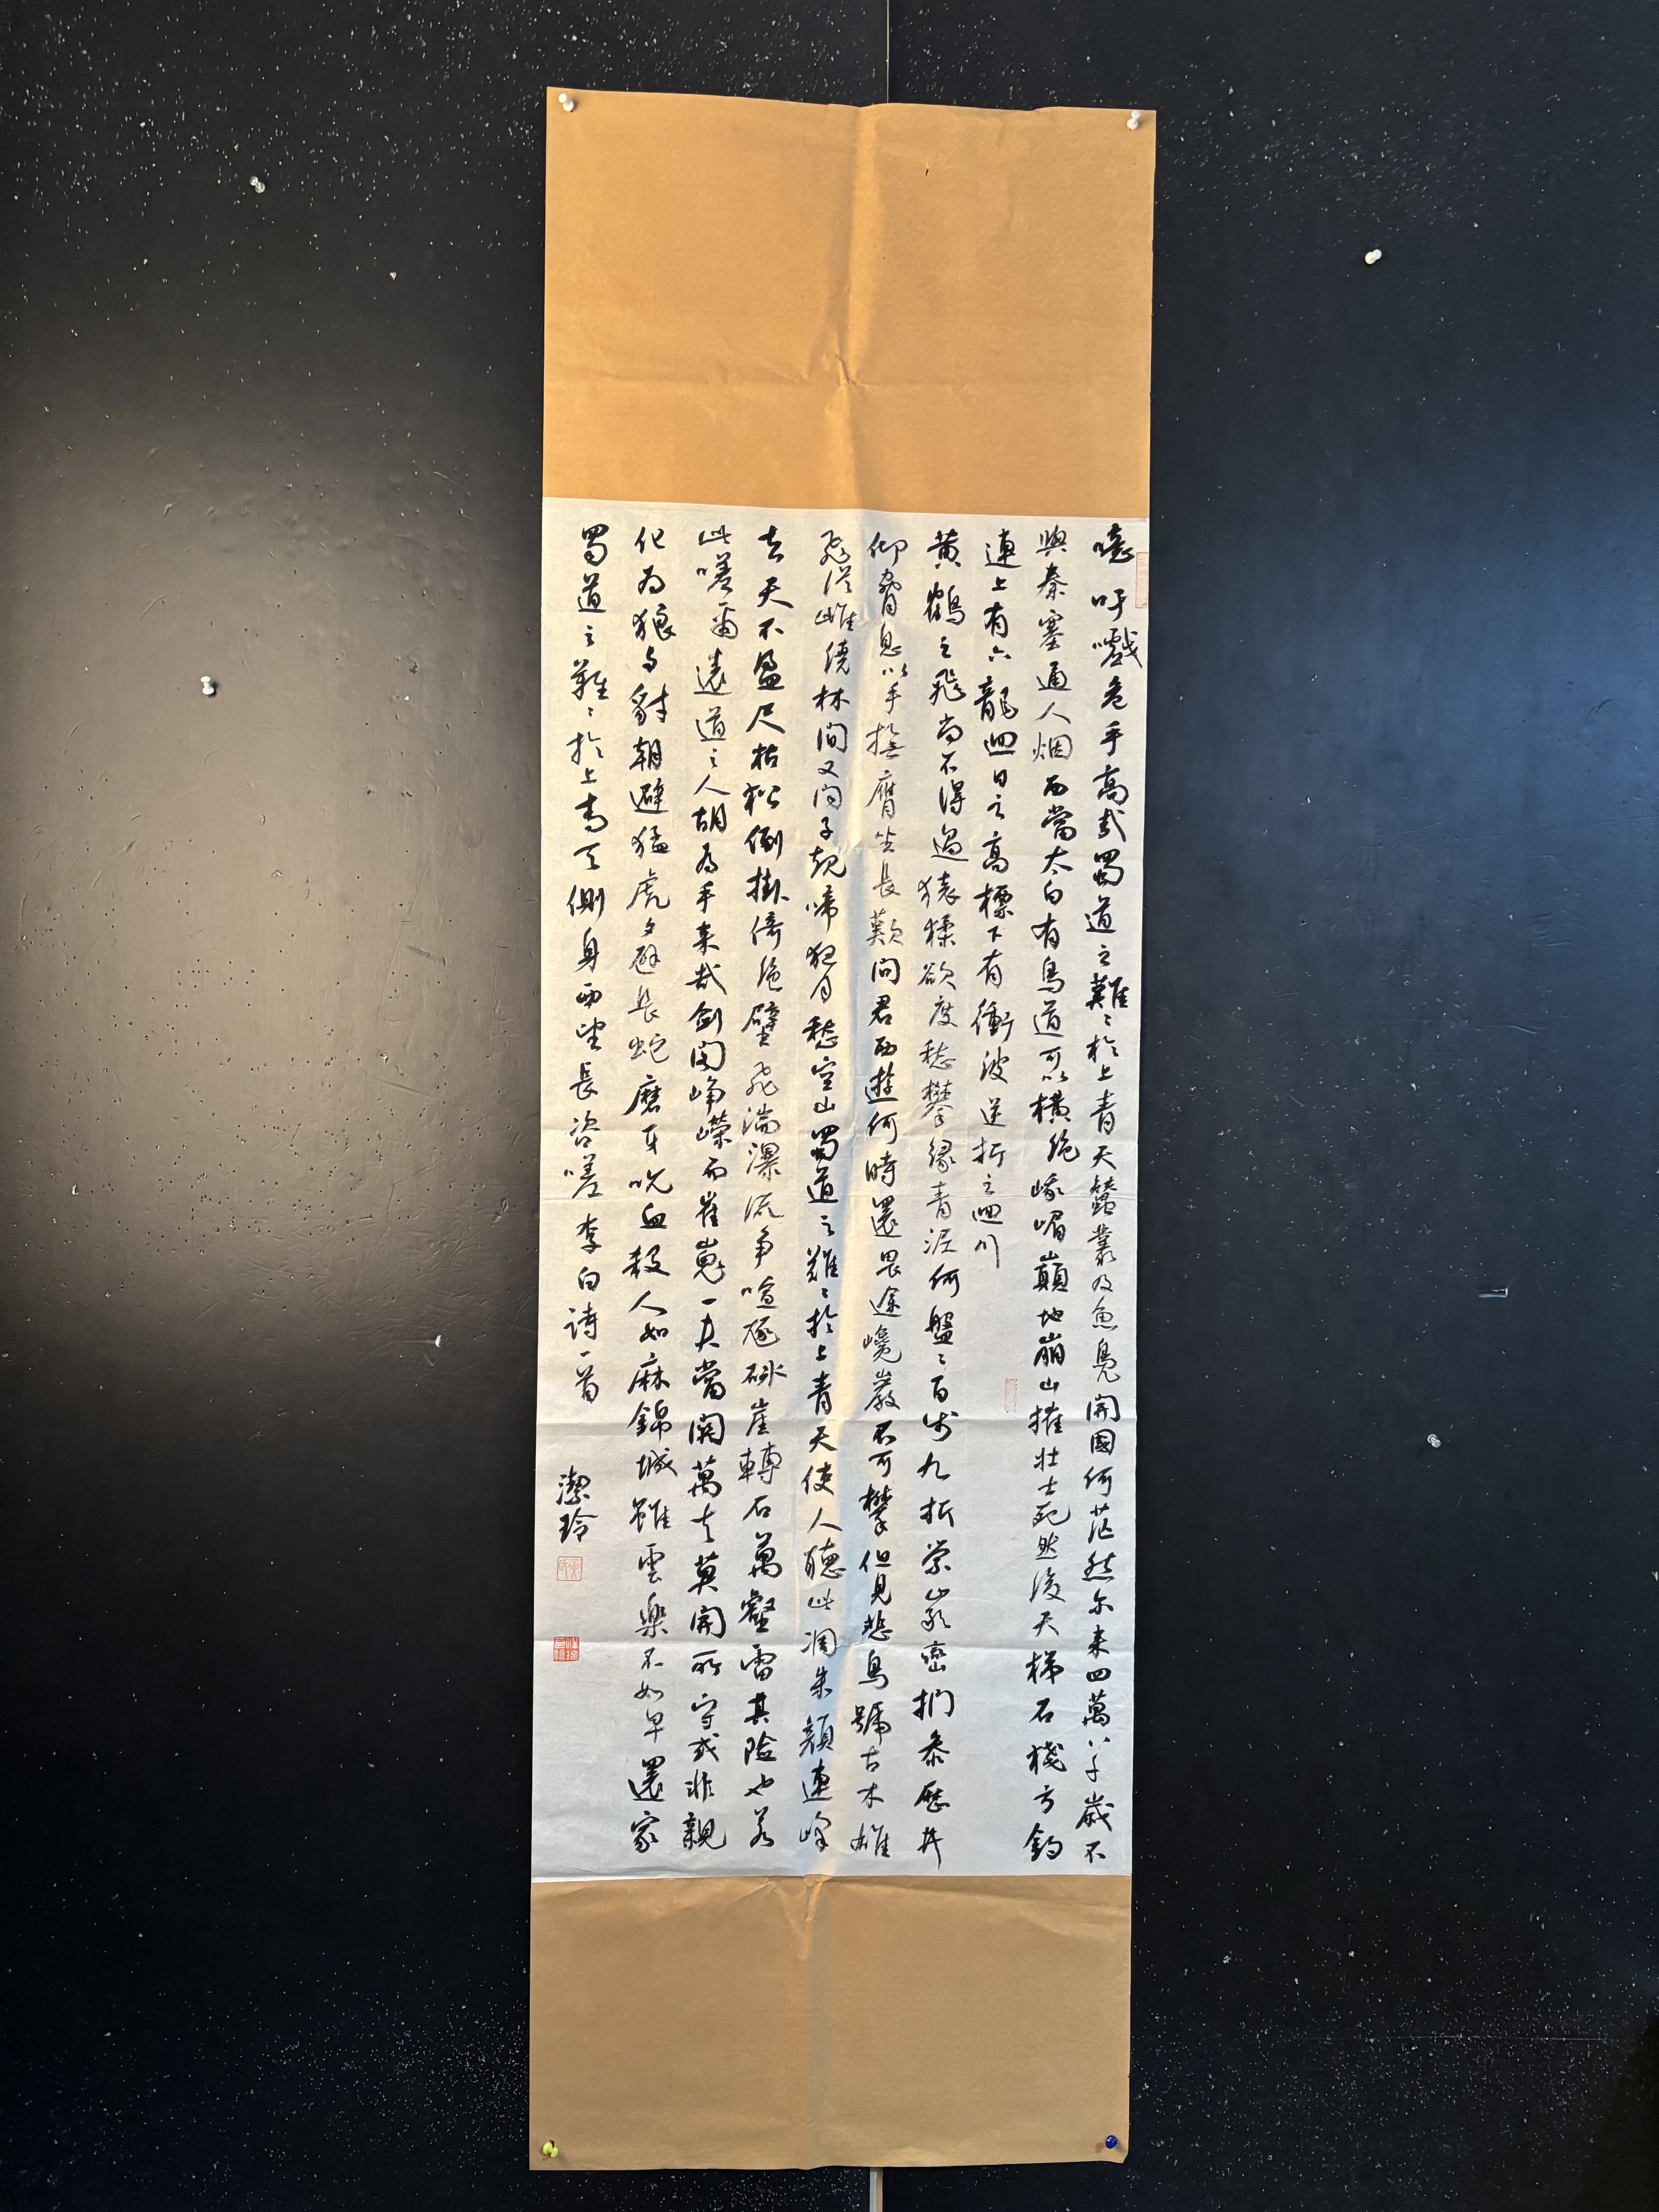 噫吁嚱危乎高哉蜀道之難〻於上青天蠶叢及魚鳧開國何茫然尔来四萬八千歲不
與秦塞通人烟西當太白有鳥道可以橫絶峨嵋巔地崩山摧壯士死然後天梯石棧方鈎
連上有六龍迴日之高標下有衝波逆折之迴川
黄鶴之飛尚不得過猿猱欲度愁攀緣青泥何盤〻百步九折縈巖巒捫参歷井
仰脅息以手撫膺坐長歎問君西遊何時還畏途巉巖不可攀但見悲鳥號古木雄
飛從雌繞林間又聞子規啼夜月愁空山蜀道之難〻於上青天使人聽此凋朱顏連峰
去天不盈尺枯松倒掛倚絶壁飛湍瀑流争喧豗砯崖轉石萬壑雷其險也若
此嗟爾遠道之人胡為乎来哉劍閣崢嶸而崔嵬一夫當關萬夫莫開所守或非親
化為狼与豺朝避猛虎夕避長蛇磨牙吮血殺人如麻錦城雖雲樂不如早還家
蜀道之難〻於上青天側身西望長咨嗟 李白詩一首 潔玲